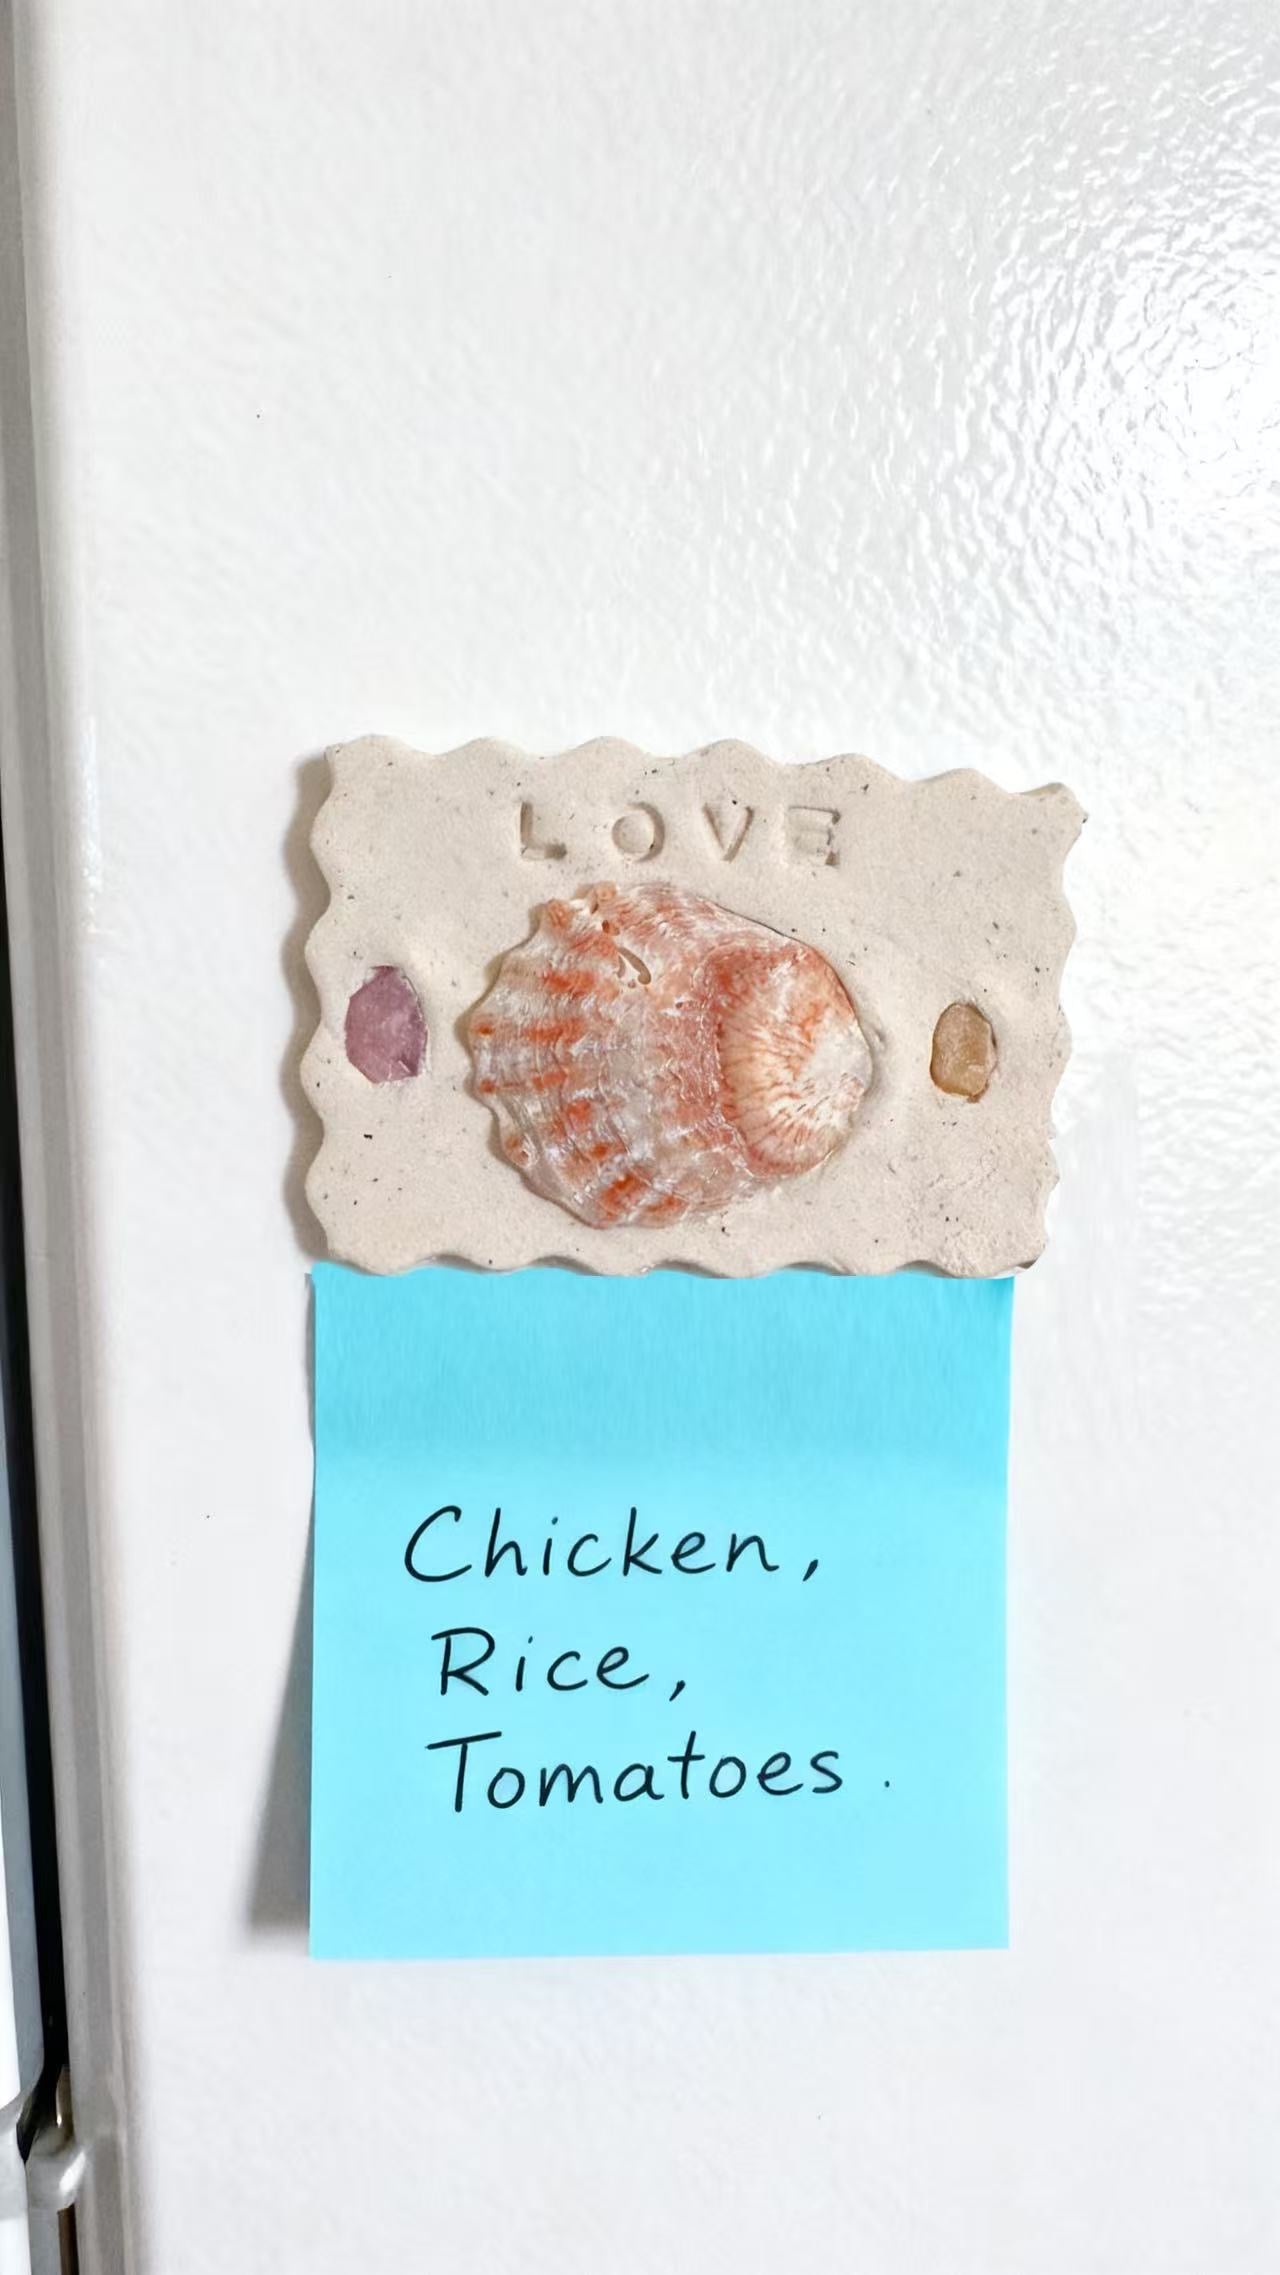 LOVE
Chicken,
Rice,
Tomatoes.